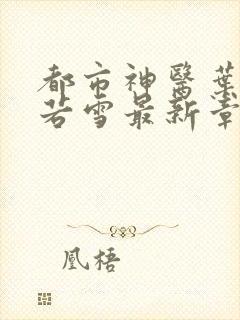 都市神醫葉
若雪最新章
凰梧